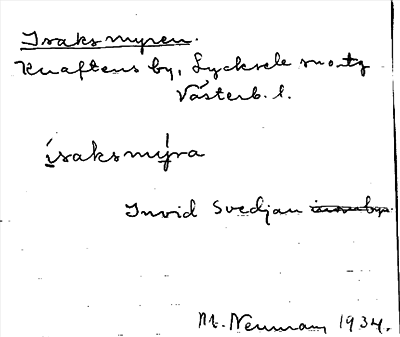 Isaksmyren.
Knaftens by, Lycksele sn o. tg
Västerb. l.
ísaksmy̍ra
Invid Svedjan
M. Neuman 1934.